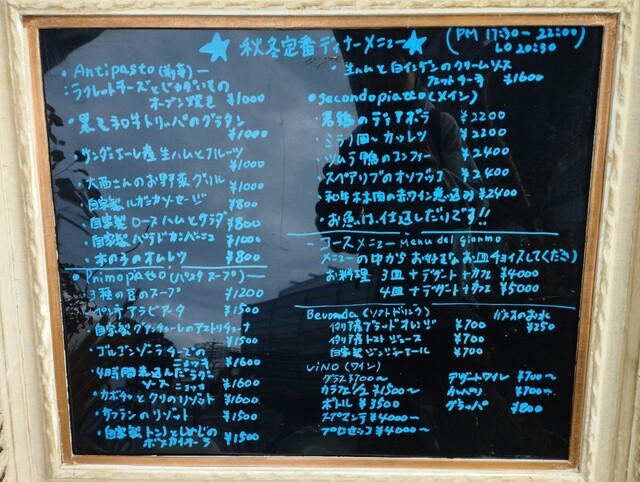 ★秋冬定番ディナーメニュー★
(PM 17:30～22:00)
LO 20:30
・Antipasto(前菜)―
ラクレットチーズとじゃがいもの
オーブン焼き ¥1000
・黒毛和牛トリッパのグラタン
¥1000
・サンダニエーレ産生ハムとフルーツ
¥1000
・大西さんのお野菜グリル ¥1000
・自家製ルガニカソーセージ ¥800
・自家製ロースハムとサラダ ¥800
・自家製パテドカンパーニュ ¥1000
・木の子のオムレツ ¥800
・Primopiatto(パスタスープ)
・3種の豆のスープ ¥1200
・ペンネアラビアータ ¥1500
・自家製グアンチャーレのアマトリチャーナ
¥1500
・ゴルゴンゾーラチーズの
ニョッキ ¥1600
・4時間煮込んだラグー
ソース ニョッキ ¥1600
・カボチャとクリのリゾット ¥1600
・サフランのリゾット ¥1500
・自家製トンノとしめじの
ボスカイオーラ ¥1500
・生ハムと白インゲンのクリームソース
¥1600
・secondopiatto(メイン)
・若鶏のディアボラ ¥2200
・ミラノ風カツレツ ¥2200
・ツムラ鴨のコンフィー ¥2400
・スペアリブのオソブッコ ¥2400
・和牛ホホ肉の赤ワイン煮込み ¥2400
・お魚は、仕込しだいです!!
―コースメニュー Menu del giorno
メニューの中からお好きなお皿チョイスしてください)
お料理 3皿+デザート+カフェ ¥4000
4皿+デザート+カフェ ¥5000
Bevanda(ソフトドリンク)
ガス入りお水
¥250
伊産ブラッドオレンジ ¥700
伊産トマトジュース ¥700
自家製ジンジャーエール ¥700
ViNO(ワイン)
グラス¥700～
カラフェ1/2 ¥1500～
ボトル ¥3500
スプマンテ ¥4000～
プロセッコ ¥4000～
デザートワイン ¥700～
カンパリ ¥700～
グラッパ ¥800